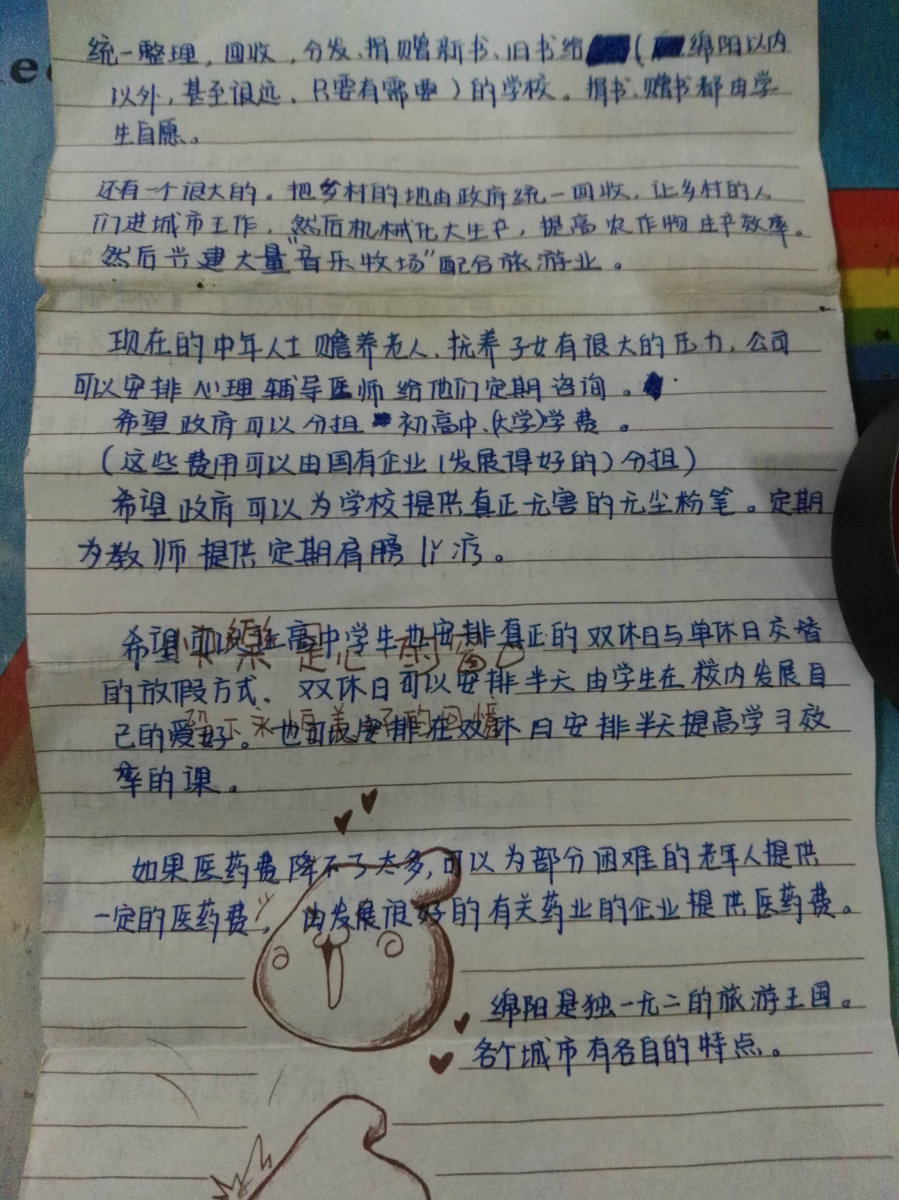 统一整理，回收，分发、捐赠新书、旧书给（绵阳以内
以外，甚至很远，只要有需要）的学校。捐书、赠书都由学
生自愿。
还有一个很大的。把乡村的地由政府统一回收，让乡村的人
们进城市工作，然后机械化大生产，提高农作物生产效率。
然后兴建大量"音乐牧场"配合旅游业。
现在的中年人士赡养老人、抚养子女有很大的压力，公司
可以安排心理辅导医师给他们定期咨询。
希望政府可以分担初高中、(大学)学费。
（这些费用可以由国有企业（发展得好的）分担）
希望政府可以为学校提供真正无害的无尘粉笔。定期
为教师提供定期肩膀疗。
希望高中学生安排真正的双休日与单休日交替
的放假方式、双休日可以安排半天由学生在校内发展自
己的爱好。也可以安排在双休日安排半天提高学习效
率的课。
如果医药费降不了太多，可以为部分困难的老年人提供
一定的医药费，由发展很好的有关药业的企业提供医药费。
绵阳是独一无二的旅游王国。
各个城市有各自的特点。